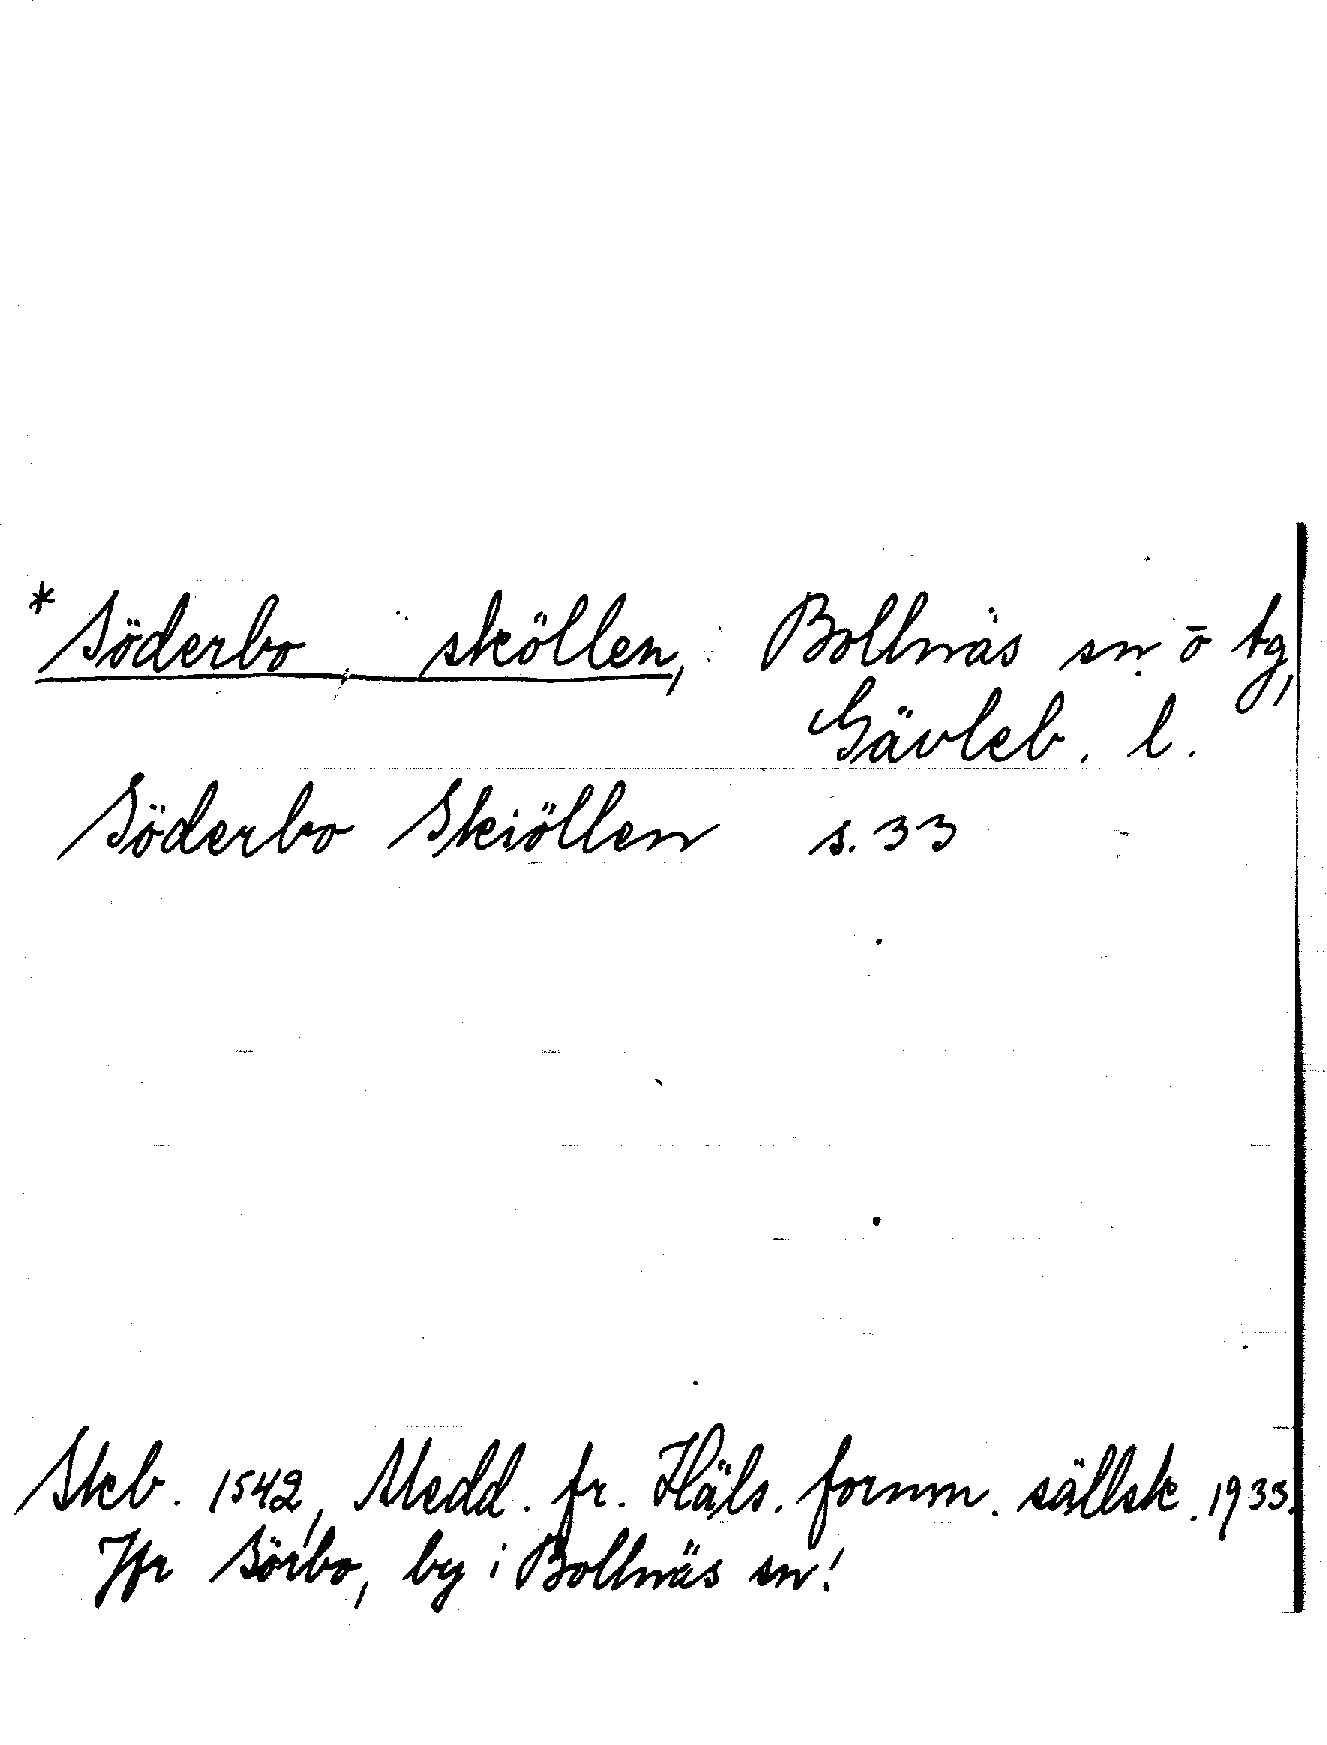 *Söderbo sköllen, Bollnäs sn o tg,
Gävleb. l.
Söderbo Skiöllen s. 33
Skb. 1542, Medd. fr. Häls. fornm. sällsk. 1933.
Jfr Sörbo, by i Bollnäs sn!